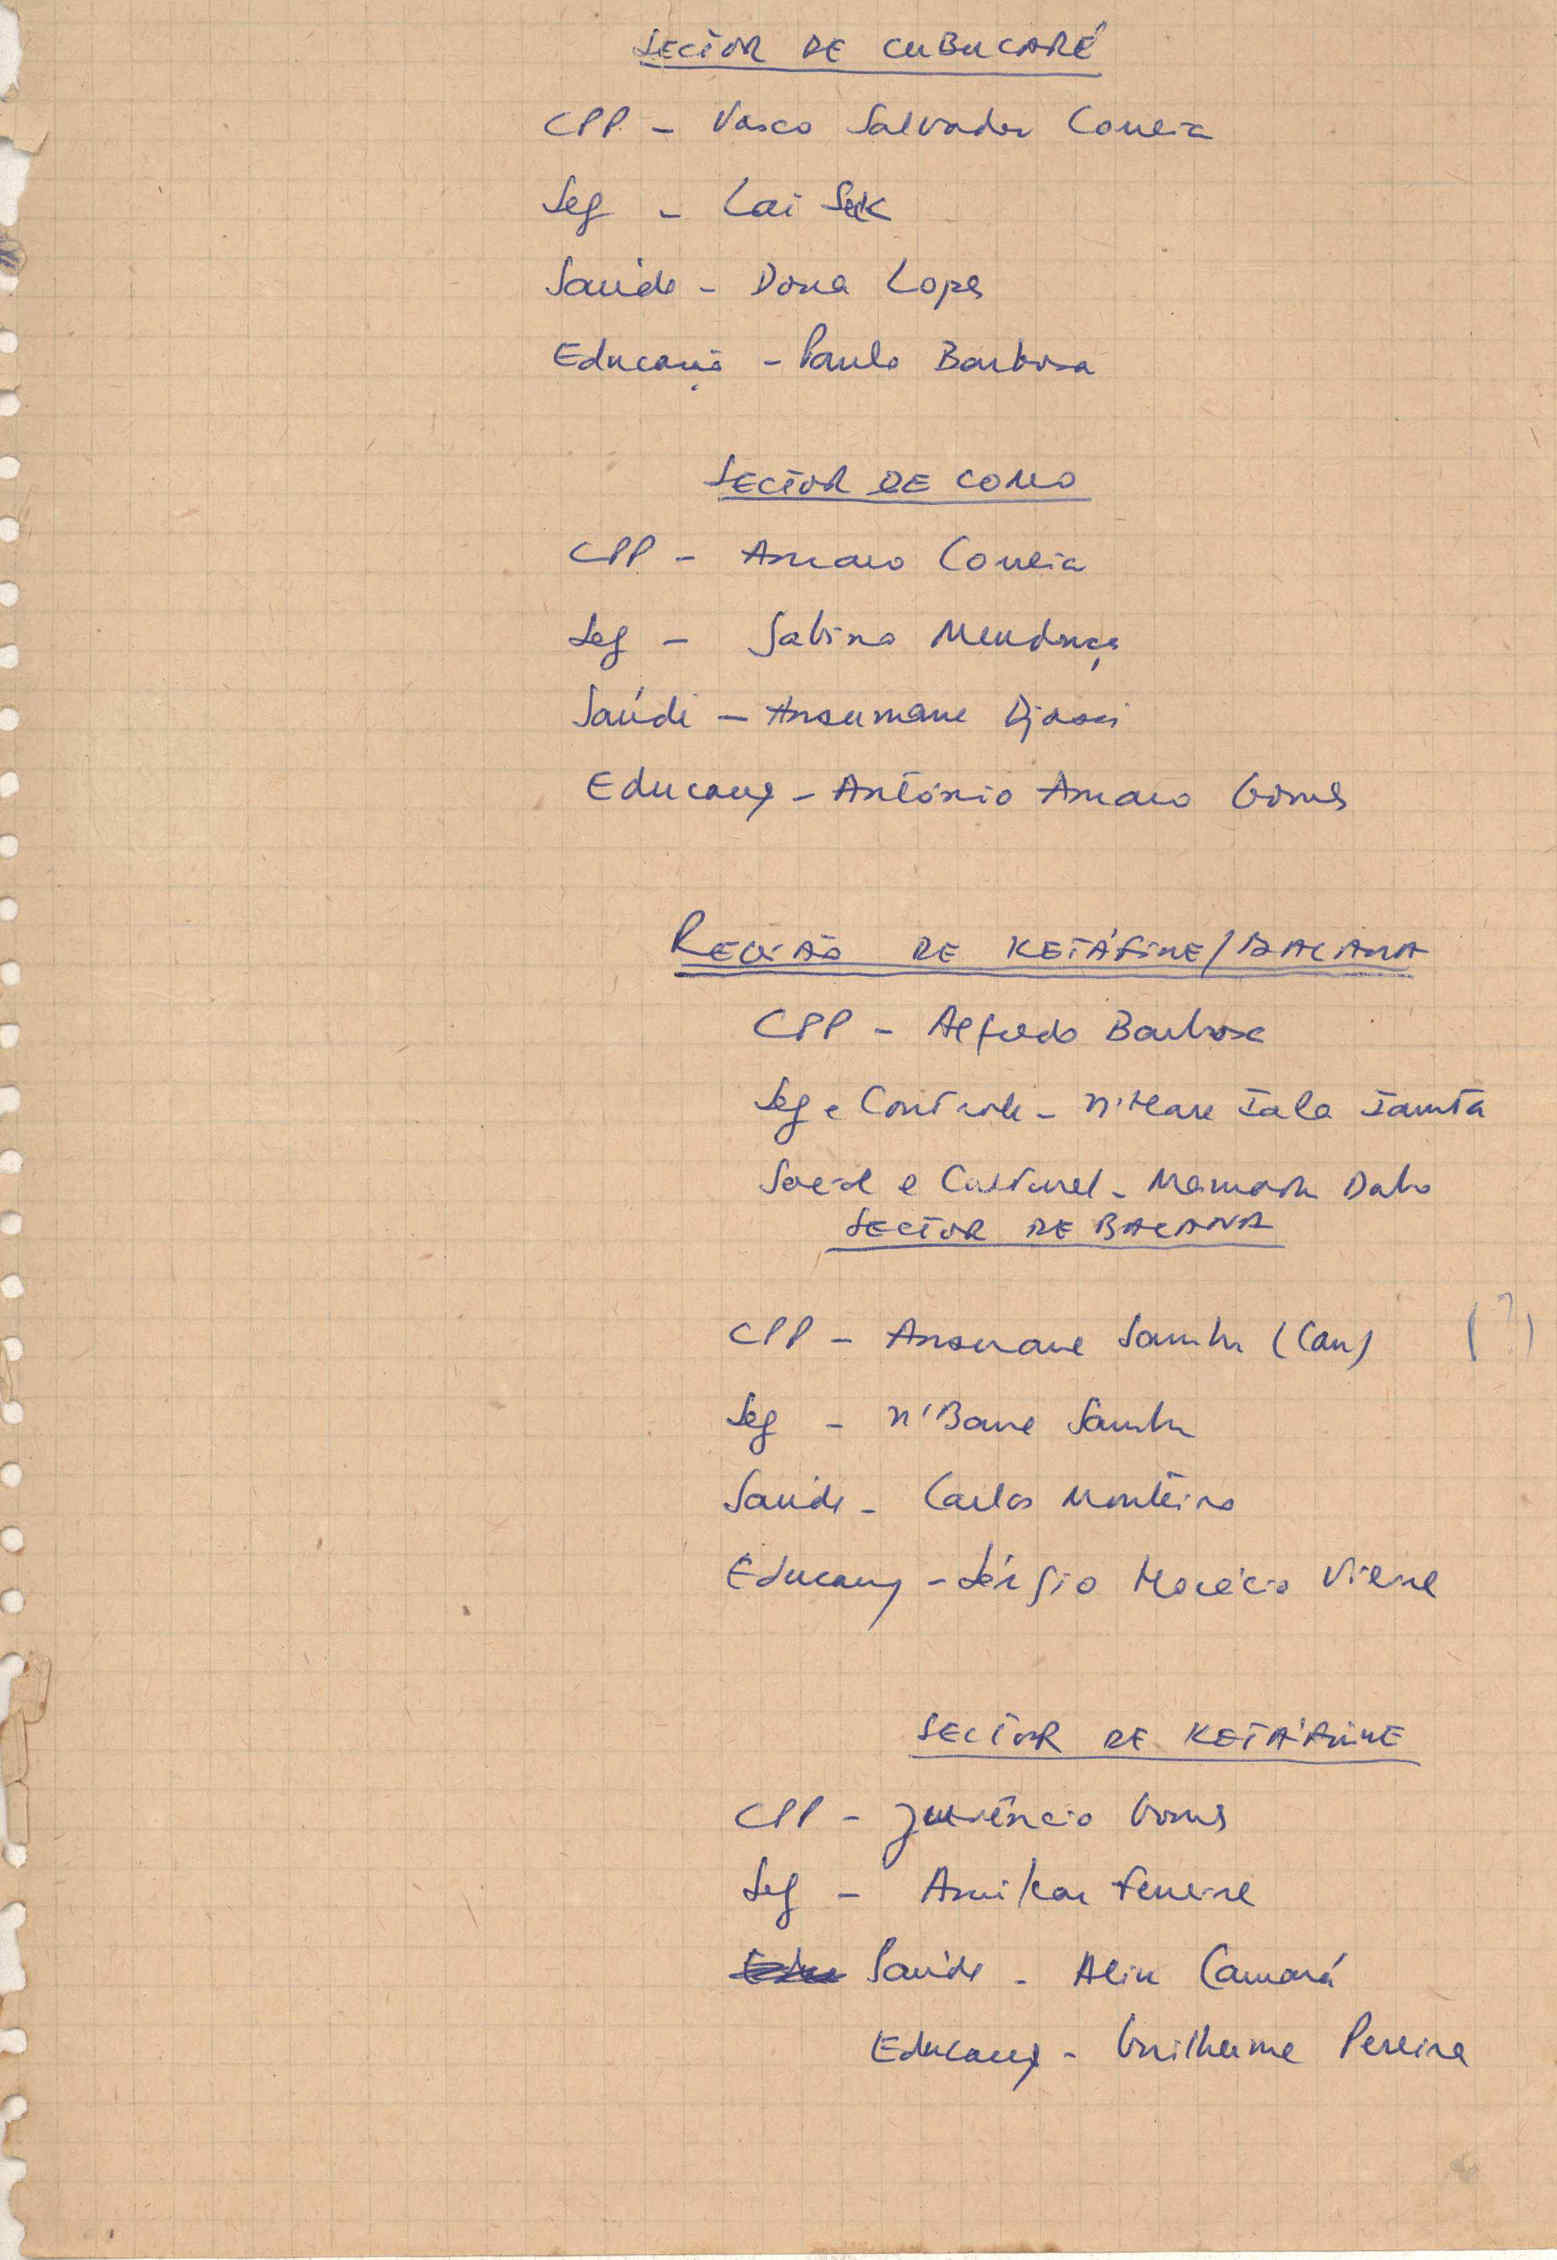 SECTOR DE CUBUCARÉ
CPP - Vasco Salvador Correia
Seg - Lai Seck
Saúde - Dona Lopes
Educação - Paulo Barbosa
SECTOR DE COMO
CPP - Amaro Correia
Seg - Sabino Mendonça
Saúde - Ansumane Djassi
Educação - António Amaro Gomes
REGIÃO DE KETÁFINE/BALANA
CPP - Alfredo Barbosa
Seg e Controle - Iala
Social e Cultural - Mamadu Dabo
SECTOR DE BALANA
CPP - Ansumane Sambu (Cau) (?)
Seg - N'Bane Sambu
Saúde - Carlos Monteiro
Educação - Sérgio Vieira
SECTOR DE KETÁFINE
CPP - Juvêncio Gomes
Seg - Amilcar Ferreira
Saúde - Aliu Camará
Educação - Guilherme Pereira